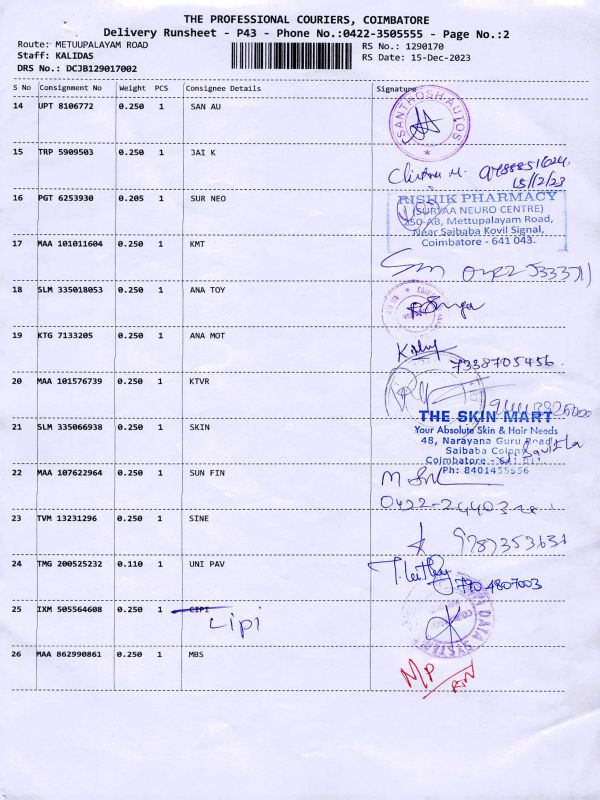 THE PROFESSIONAL COURIERS, COIMBATORE
Delivery Runsheet - P43 - Phone No.:0422-3505555 - Page No.:2
Route: METUUPALAYAM ROAD RS No.: 1290170
Staff: KALIDAS RS Date: 15-Dec-2023
DRS No.: DCJB129017002
S No Consignment No Weight PCS Consignee Details Signature
14 UPT 8106772 0.250 1 SAN AU
SANTHOSH AUTOS
15 TRP 5909503 0.250 1 JAI K
15/12/23
16 PGT 6253930 0.205 1 SUR NEO
RISHIK PHARMACY
(SURYAA NEURO CENTRE)
250-AB, Mettupalayam Road,
Near Saibaba Kovil Signal,
Coimbatore - 641 043.
17 MAA 101011604 0.250 1 KMT
18 SLM 335018053 0.250 1 ANA TOY
19 KTG 7133205 0.250 1 ANA MOT
7338705456.
20 MAA 101576739 0.250 1 KTVR
21 SLM 335066938 0.250 1 SKIN
THE SKIN MART
Your Absolute Skin & Hair Needs
48, Narayana Guru Road
Saibaba Colony
Coimbatore -
Ph: 8401455556
22 MAA 107622964 0.250 1 SUN FIN
23 TVM 13231296 0.250 1 SINE
24 TMG 200525232 0.110 1 UNI PAV
25 IXM 505564608 0.250 1 CIPI
Lipi
DATA SYSTEM
26 MAA 862990861 0.250 1 MBS
MP